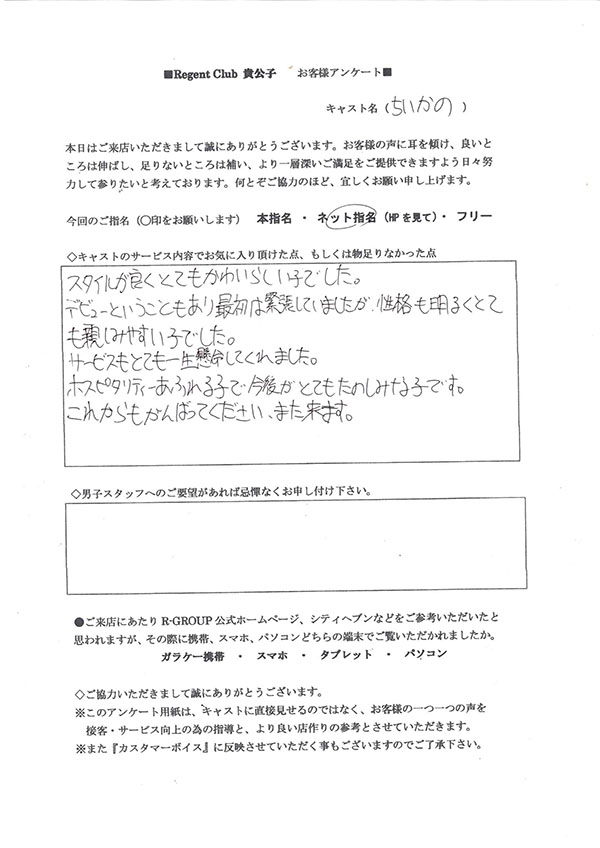 ■Regent Club 貴公子 お客様アンケート■
キャスト名（ちいかの）
本日はご来店いただきまして誠にありがとうございます。お客様の声に耳を傾け、良いと
ころは伸ばし、足りないところは補い、より一層深いご満足をご提供できますよう日々努
力して参りたいと考えております。何とぞご協力のほど、宜しくお願い申し上げます。
今回のご指名（〇印をお願いします） 本指名 ・ ネット指名（HPを見て）・ フリー
◇キャストのサービス内容でお気に入り頂けた点、もしくは物足りなかった点
スタイルが良くとてもかわいらしい子でした。
デビューということもあり最初は緊張していましたが、性格も明るくとて
も親しみやすい子でした。
サービスもとても一生懸命してくれました。
ホスピタリティーあふれる子で今後がとてもたのしみな子です。
これからもがんばってください、また来ます。
◇男子スタッフへのご要望があれば忌憚なくお申し付け下さい。
●ご来店にあたり R-GROUP 公式ホームページ、シティヘブンなどをご参考いただいたと
思われますが、その際に携帯、スマホ、パソコンどちらの端末でご覧いただかれましたか。
ガラケー携帯 ・ スマホ ・ タブレット ・ パソコン
◇ご協力いただきまして誠にありがとうございます。
※このアンケート用紙は、キャストに直接見せるのではなく、お客様の一つ一つの声を
接客・サービス向上の為の指導と、より良い店作りの参考とさせていただきます。
※また『カスタマーボイス』に反映させていただく事もございますのでご了承下さい。